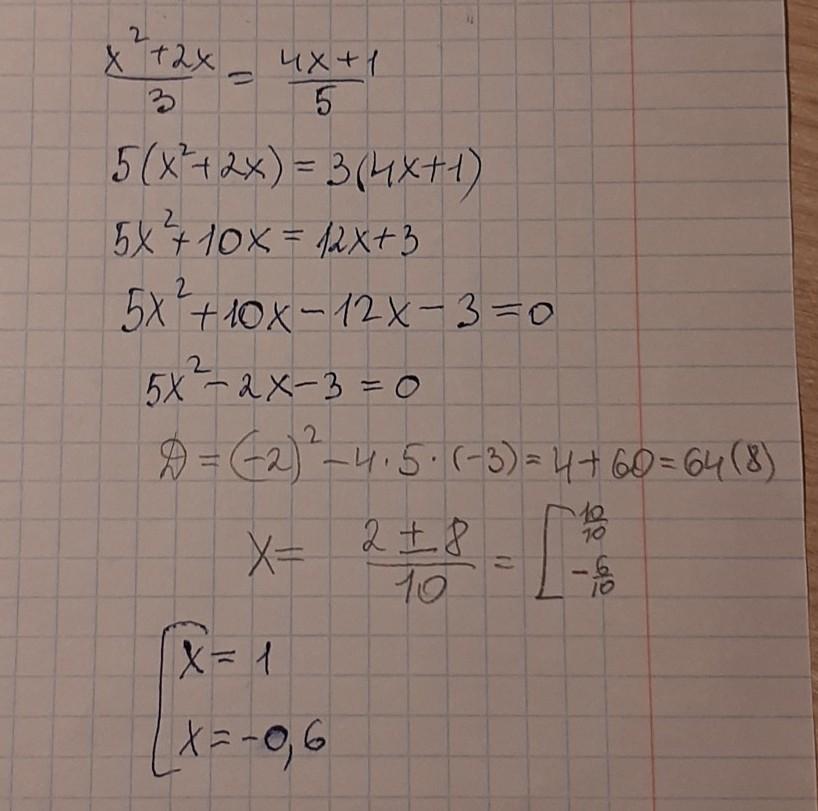 (x²+2x)/3 = (4x+1)/5
5(x²+2x)=3(4x+1)
5x²+10x=12x+3
5x²+10x-12x-3=0
5x²-2x-3=0
D=(-2)²-4·5·(-3)=4+60=64(8)
x= (2±8)/10 = [ 10/10
-6/10
[ x=1
x=-0,6